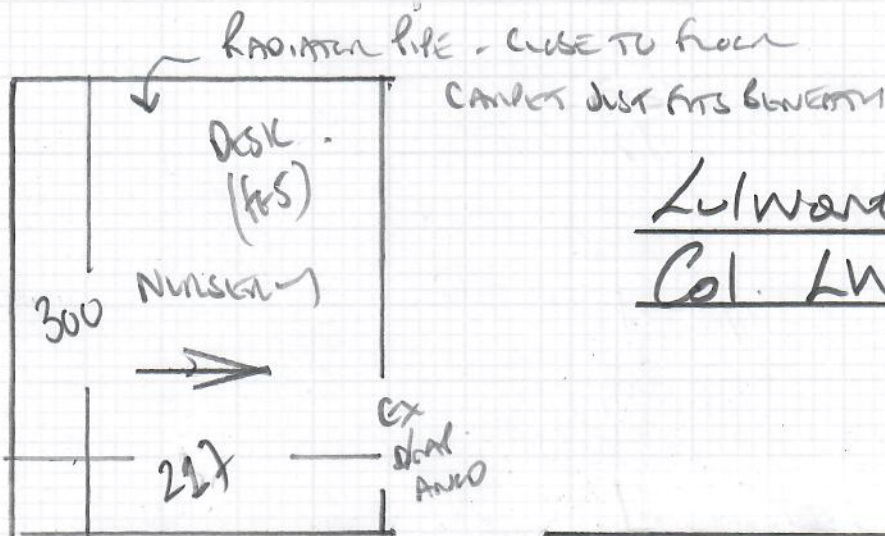 RADIATOR PIPE - CLOSE TO FLOOR
CARPET JUST FITS BENEATH
DESK.
(FES)
NURSERY
300
217
EX
Col. LW